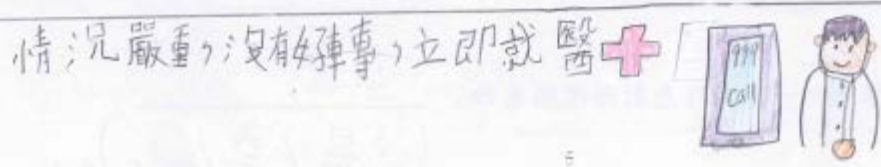 情況嚴重，沒有好轉，立即就醫
999
call